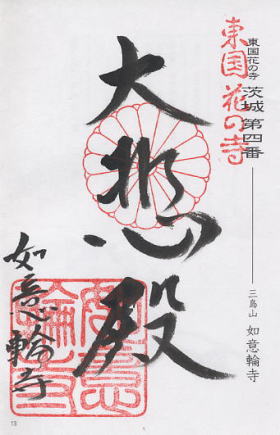 東国花の寺
東国花の寺 茨城 第四番
三島山 如意輪寺
大悲殿
如意輪寺
如意輪寺
13